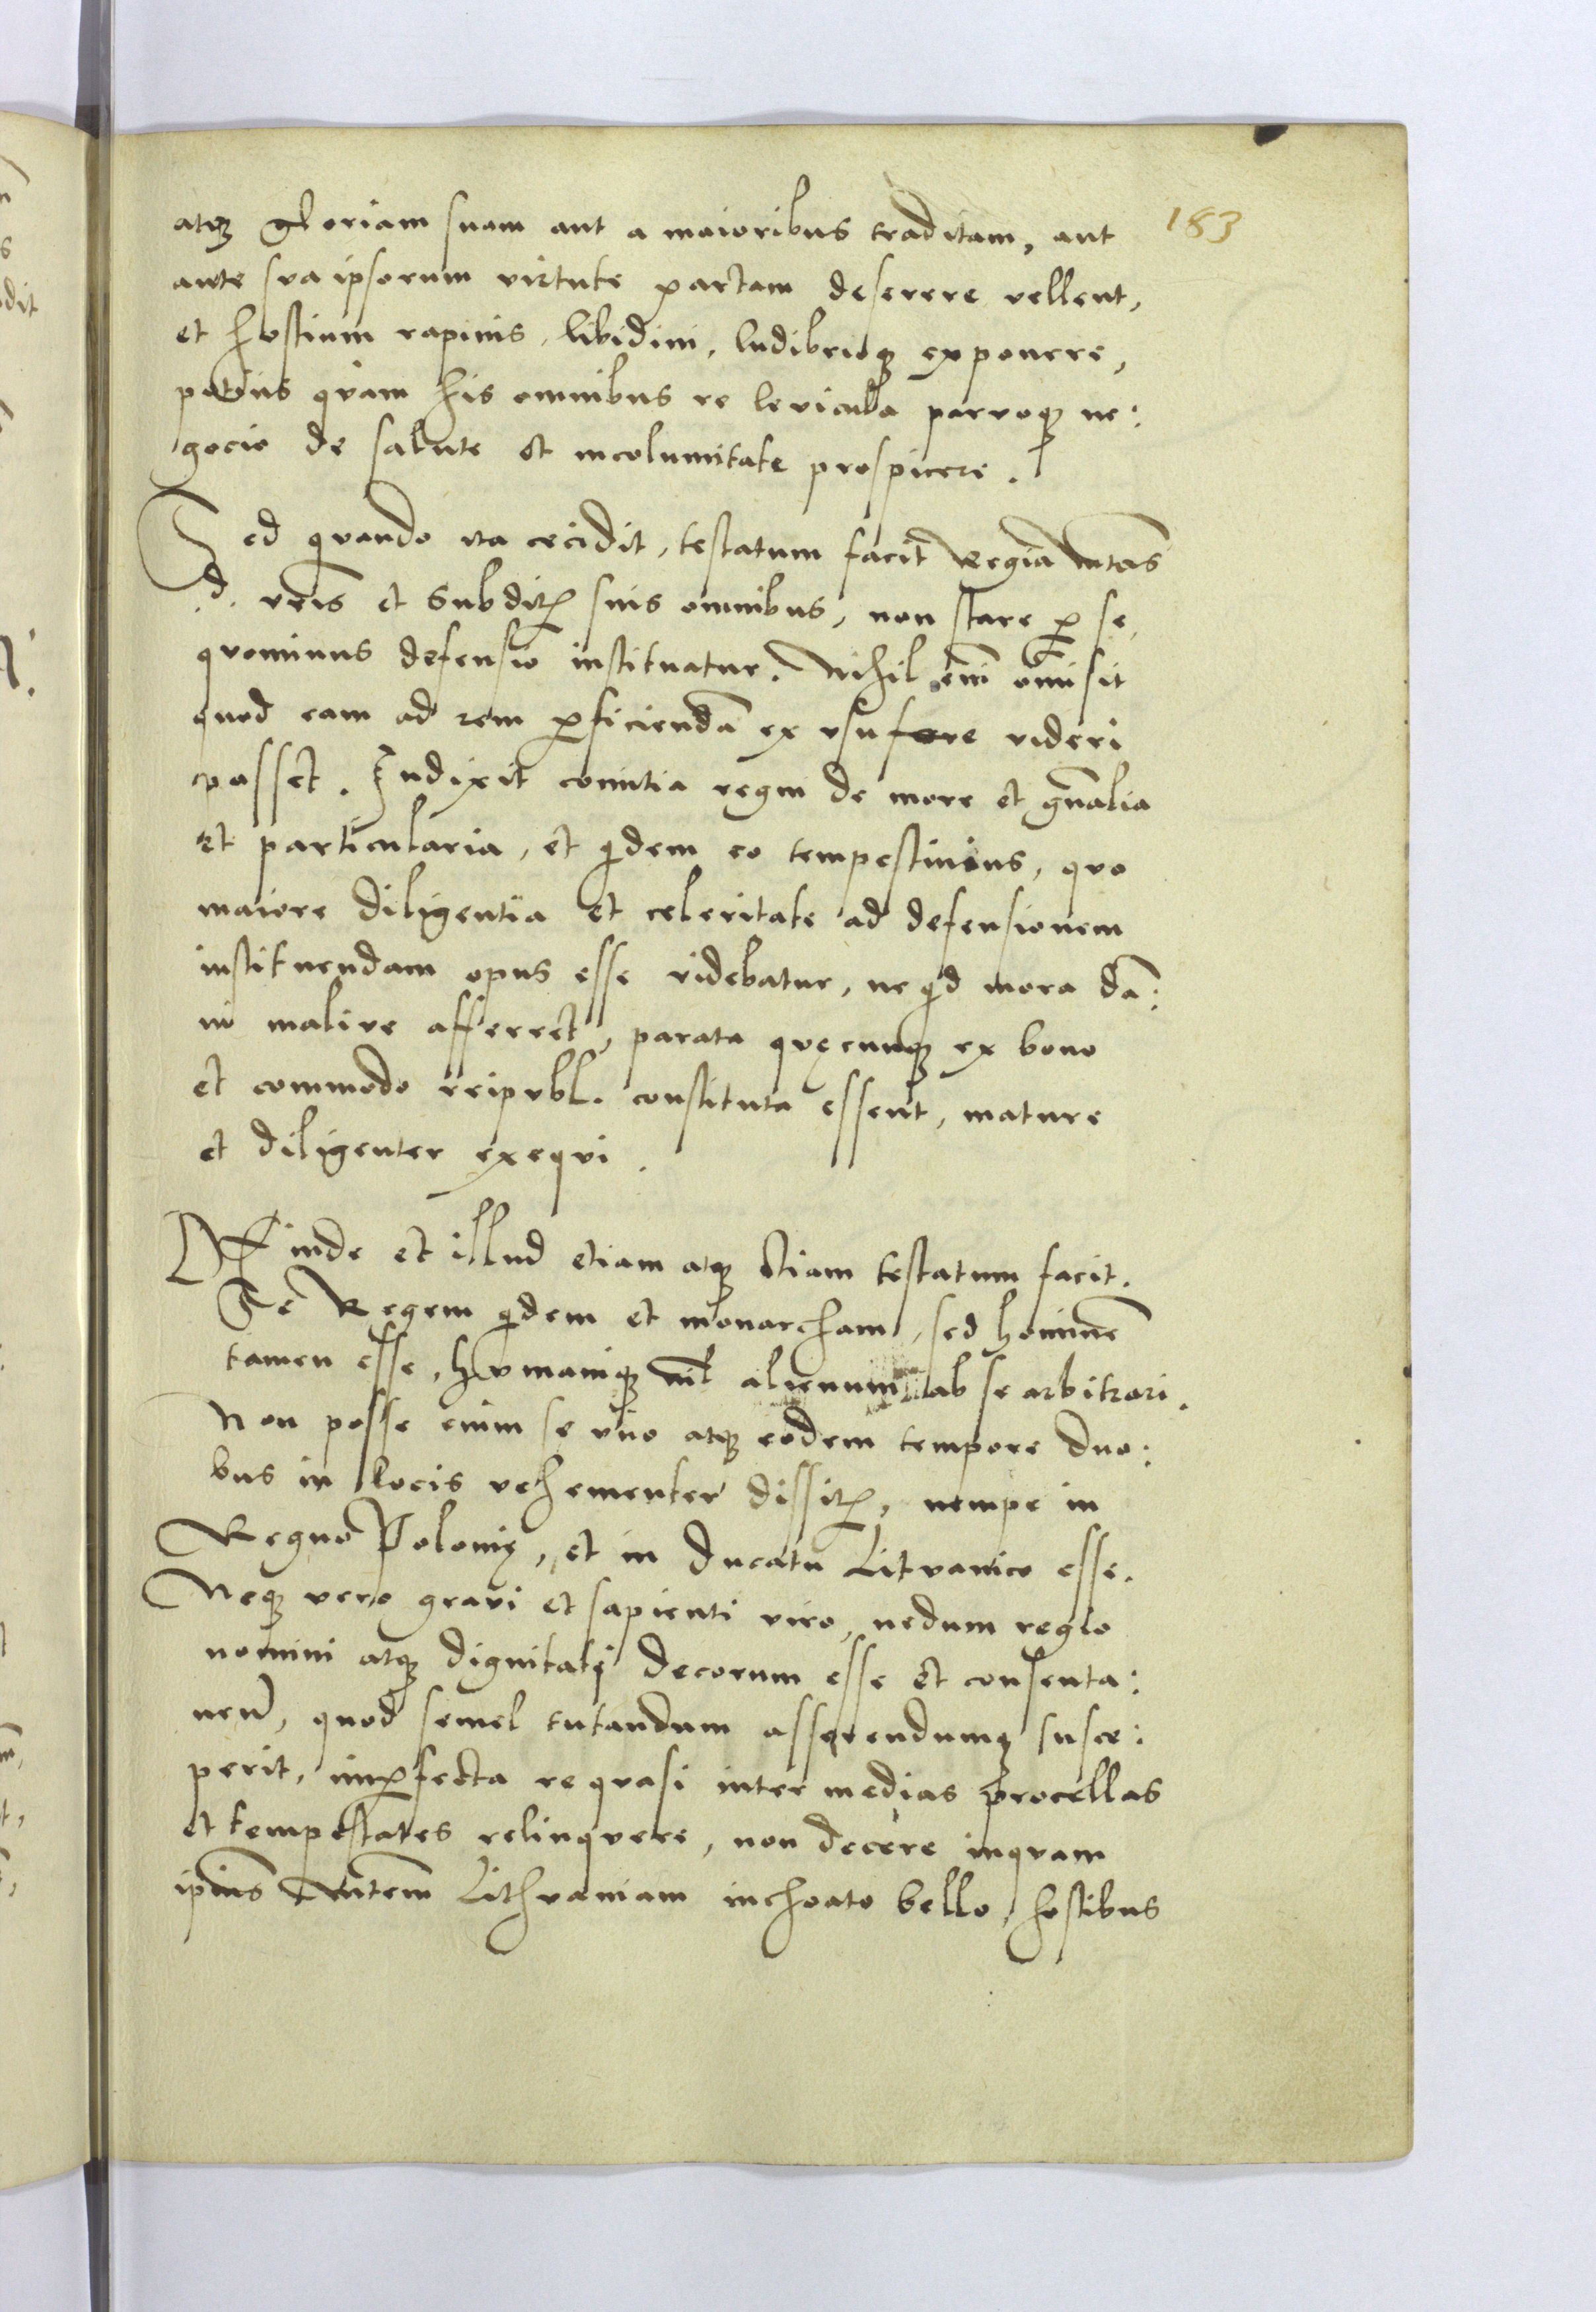 183
atqꝫ gloriam suam aut a maioribus traditam, aut
ante sua ipsorum virtute partam deserere vellent,
et hostium rapinis, libidini, ludibrioqꝫ exponere,
potius quam his omnibus re levicula parvoqꝫ ne:
gocio de salute et incolumitate prospicere.
Sed quando ita cecidit, testatum facit Regia Mtas
.d. vris et subditꝭ suis omnibus, non stare ꝑ se,
quominus defensio instituatur. Nihil em̄ omisit
quod eam ad rem ꝑficiendā ex usu fore videri
posset. Indixit comitia regni de more et gn̄alia
et particularia, et qͥdem eo tempestivius, quo
maiore diligentia et celeritate ad defensionem
instituendam opus esse videbatur, ne qͥd mora dā:
ni maliue afferret, parata quęcunqꝫ ex bono
et commodo reipubl. constituta essent, mature
et diligenter exequi.
Deinde et illud etiam atqꝫ etiam testatum facit.
Se Regem qͥdem et monarcham, sed hominē
tamen esse, humaniqꝫ nil alienum ab se arbitrari.
Non posse enim se uno atqꝫ eodem tempore duo:
bus in locis vehementer dissitꝭ, nempe in
Regno Polonię, et in Ducatu Litvanico esse.
Neqꝫ vero gravi et sapienti viro, nedum regio
nomini atqꝫ dignitati decorum esse et consenta:
neū, quod semel tutandum asserendumqꝫ susce:
perit, imꝑfecta re quasi inter medias procellas
et tempestates relinquere, non decere inquam
ip̄ius Mtem̄ Lithvaniam inchoato bello, hostibus